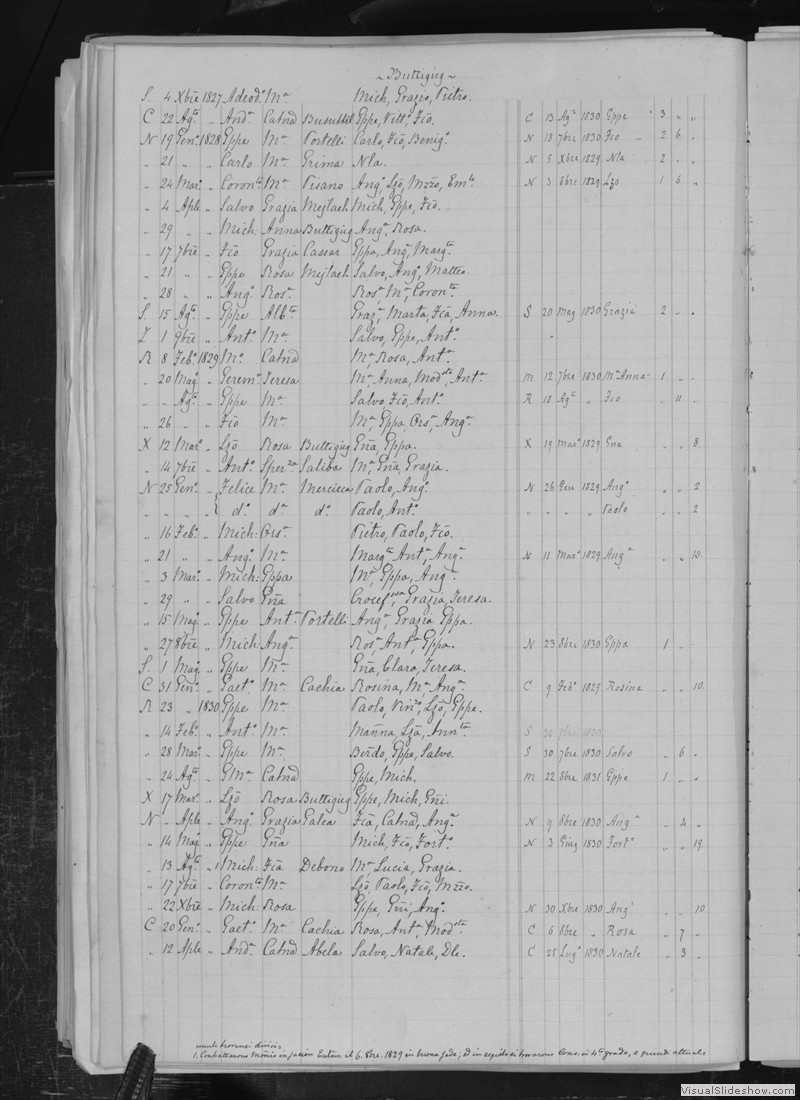 ~ Buttigieg ~
S. 4 Xbre 1827 Adeod.º M.ª Mich, Grazio, Pietro.
C 22 Ag.to „ And.ª Catnā Busuttil Eppe, Vitt.º, Fio. C 13 Ag.to 1830 Eppe 3 „ „
N 19 Gen.º 1828 Eppe M.ª Portelli Carlo, Fio, Benig.º N 18 7bre 1830 Fio 2 6 „
„ 21 „ „ Carlo M.ª Grima Nla. N 5 Xbre 1829 Nla 2 „ „
„ 24 Mar.º „ Coron.to M.ª Pisano Ang.º, Lzo, Mzzo, Em.le N 3 8bre 1829 Lzo 1 6 „
„ 4 Aple „ Salvo Grazia Mejlach Mich, Eppe, Fio.
„ 29 „ „ Mich: Anna Buttigieg Ang.ª, Rosa.
„ 17 7bre „ Fio Grazia Cassar Eppa, Ang.ª, Marg.ta
„ 21 „ „ Eppe Rosa Mejlach Salvo, Ang.º, Matteo.
„ 28 „ „ Ang.º Ros.ª Ros.ª, M.ª, Coron.ta
S. 15 Ag.to „ Eppe Alb.ta Graz.ª, Marta, Fia, Anna. S 20 Mag 1830 Grazia 2 „ „
Z 1 9bre „ Ant.º M.ª Salvo, Eppe, Ant.º
R 8 Feb.º 1829 M.º Catnā M.ª Rosa, Ant.ª
„ 20 Mag.º „ Gerem.º Teresa M.ª Anna, Mod.sta, Ant.ª M 12 7bre 1830 M.ª Anna 1 „ „
„ „ Ag.to „ Eppe M.ª Salvo, Fio, Ant.º R 18 Ag.to „ Fio „ 11 „
„ 26 „ „ Fio M.ª M.ª, Eppa, Ors.ª, Ang.ª
X 12 Mar.º „ Lzo Rosa Buttigieg Gna, Eppa. X 19 Mar.º 1829 Gna „ „ 8.
„ 14 7bre „ Ant.º Sper.za Saliba M.ª, Gna, Grazia.
N 25 Gen.º „ Felice M.ª Mercieca Paolo, Ang.º N 26 Gen 1829 Ang.º „ „ 2
„ „ „ „ d.º d.ª d.º Paolo, Ant.º „ „ „ „ Paolo „ „ 2
„ 16 Feb.º „ Mich: Ors.ª Pietro, Paolo, Fio.
„ 21 „ „ Ang.º M.ª Marg.ta, Ant.ª, Ang.ª N 11 Mar.º 1829 Ang.ª „ „ 13.
„ 3 Mar.º „ Mich: Eppa M.ª, Eppa, Ang.ª
„ 29 „ „ Salvo Gna Crocef.ssa, Grazia, Teresa.
„ 15 Mag.º „ Eppe Ant.ª Portelli Ang.ª, Grazia, Eppa.
„ 27 8bre „ Mich: Ang.ª Ros.ª, Ant.ª, Eppa. N 23 8bre 1830 Eppa 1 „
S. 1 Mag.º „ Eppe M.ª Gna, Clara, Teresa.
C 31 Gen.º „ Gaet.º M.ª Cachia Rosina, M.ª, Ang.ª C 9 Feb.º 1829 Rosina „ „ 10.
R 23 „ 1830 Eppe M.ª Paolo, Vin.zo, Lzo, Eppe.
„ 14 Feb.º „ Ant.º M.ª Manna, Lza, Ann.ta S 30 7bre 1830
„ 28 Mar.º „ Eppe M.ª Berdo, Eppe, Salvo. S 30 7bre 1830 Salvo „ 6 „
„ 24 Ag.to „ GMa Catnā Eppe, Mich. M 22 8bre 1831 Eppe 1 „ „
X 17 Mar.º „ Lzo Rosa Buttigieg Eppe, Mich, Gni.
N „ Aple „ Ang.º Grazia Galea Fia, Catnā, Ang.ª N 9 8bre 1830 Ang.ª „ 4 „
„ 14 Mag „ Eppe Gna Mich, Fio, Fort.º N 3 Giug 1830 Fort.º „ „ 19.
„ 13 Ag.to „ 1 Mich: Fia Debono M.ª Lucia, Grazia.
„ 17 7bre „ Coron.to M.ª Lzo, Paolo, Fio, Mzzo.
„ 22 Xbre „ Mich: Rosa Eppe, Gni, Ang.º N 30 Xbre 1830 Ang.º „ „ 10
C 20 Gen.º „ Gaet.º M.ª Cachia Rosa, Ant.ª, Mod.sta C 6 8bre „ Rosa „ 7 „
„ 12 Aple „ And.ª Catnā Abela Salvo, Natale, Dle. C 25 Lug.º 1830 Natale „ 3 „
divisi
1. il 6. 8bre. 1829 in buona fede; ed in seguito si trovarono Cons. in 4.º grado, e quindi
VisualSlideshow.com